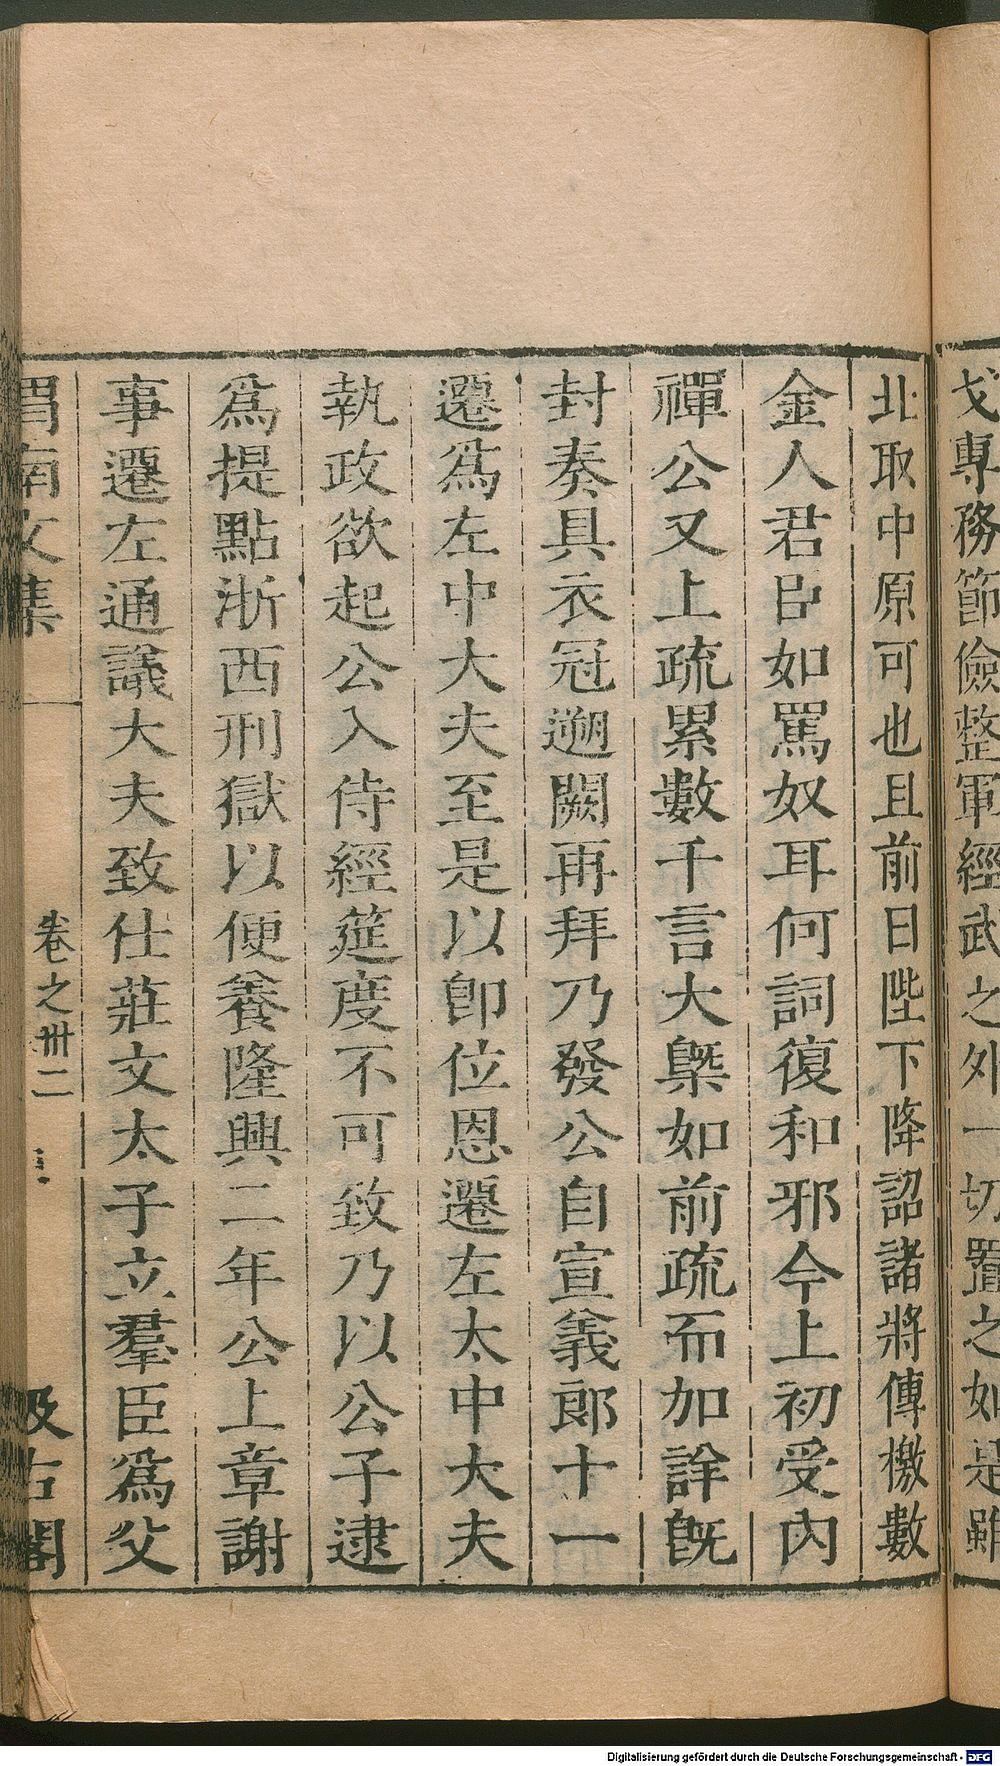 戈專務節儉整軍經武之外一切置之如是雖
北取中原可也且前日陛下降詔諸將傳檄數
金人君臣如罵奴耳何詞復和邪今上初受內
禪公又上疏累數千言大槩如前疏而加詳旣
封奏具衣冠遡闕再拜乃發公自宣義郎十一
遷爲左中大夫至是以卽位恩遷左太中大夫
執政欲起公入侍經筵度不可致乃以公子逮
爲提點浙西刑獄以便養隆興二年公上章謝
事遷左通議大夫致仕莊文太子立羣臣爲父
渭南文集 卷之卅二 汲古閣
Digitalisierung gefördert durch die Deutsche Forschungsgemeinschaft - DFG